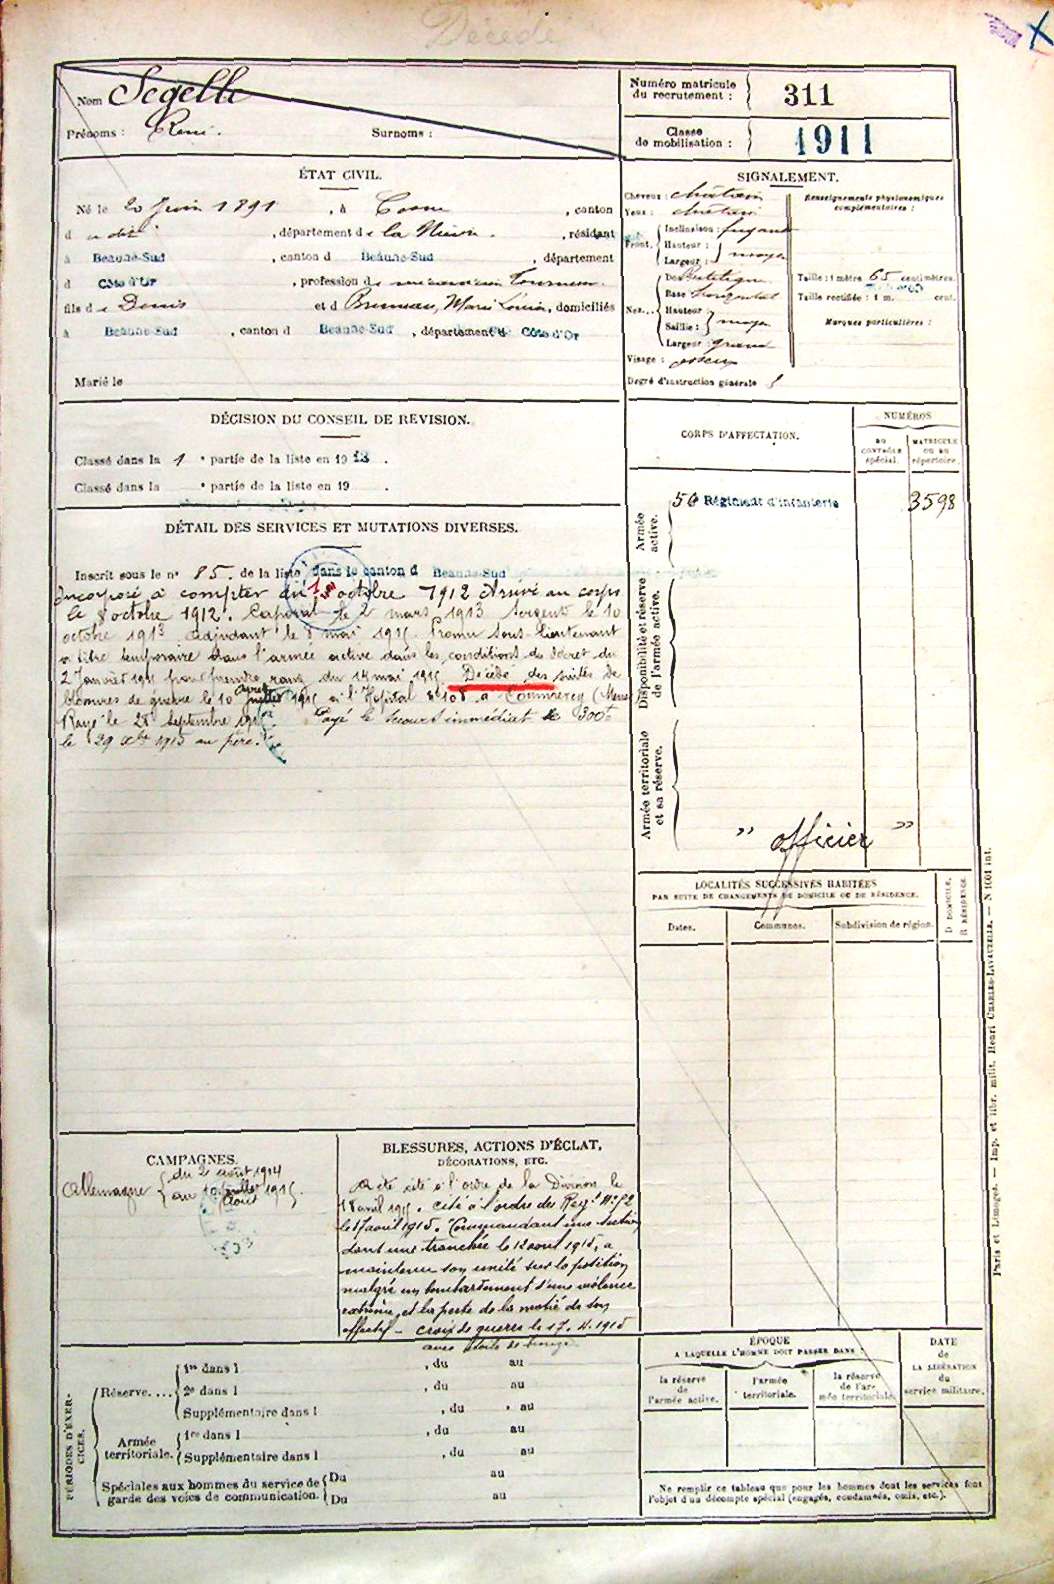 Décédé
Nom Segelle
Prénoms : René. Surnoms :
Numéro matricule du recrutement : 311
Classe de mobilisation : 1911
ÉTAT CIVIL.
Né le 20 Juin 1891, à Cosne, canton
d u dit, département de la Nièvre, résidant
à Beaune-Sud, canton d Beaune-Sud, département
d Côte d'Or, profession de mécanicien Tourneur
fils de Denis et d Bruneau, Marie Louise, domiciliés
à Beaune-Sud, canton d Beaune-Sud, département d Côte d'Or
Marié le
SIGNALEMENT.
Cheveux : châtain
Yeux : châtain
Front. Inclinaison : fuyant
Hauteur :
Largeur : moyen
Nez... Dos
Base horizontal
Hauteur
Saillie : moyen
Largeur : grand
Visage : osseux
Degré d'instruction générale 3
Renseignements physionomiques complémentaires :
Taille : 1 mètre 65 centimètres.
Taille rectifiée : 1 m. cent.
Marques particulières :
DÉCISION DU CONSEIL DE REVISION.
Classé dans la 1 e partie de la liste en 1912.
Classé dans la e partie de la liste en 19 .
CORPS D'AFFECTATION.
NUMÉROS
AU CONTRÔLE spécial.
MATRICULE OU AU répertoire.
Armée active.
56 Régiment d'infanterie 3598
Disponibilité et réserve de l'armée active.
Armée territoriale et sa réserve.
" officier "
DÉTAIL DES SERVICES ET MUTATIONS DIVERSES.
Inscrit sous le n° 85. de la liste dans le canton d Beaune-Sud
Incorporé à compter du octobre 1912 Arrivé au corps
le 8 octobre 1912. Caporal le 2 mars 1913 Sergent le 10
octobre 1913 Adjudant le 8 mai 1915 Promu sous-lieutenant
à titre temporaire dans l'armée active dans les conditions du décret du
2 Janvier 1915 pour prendre rang du 14 mai 1915 Décédé des suites de
blessures de guerre le 10 juillet 1915 à l'Hôpital n° 108 à Commercy (Meuse
Rayé le 28 Septembre 1915 Payé le secours immédiat de 300f
le 29 1915 au père.
LOCALITÉS SUCCESSIVES HABITÉES
PAR SUITE DE CHANGEMENTS DE DOMICILE OU DE RÉSIDENCE.
Dates. Communes. Subdivision de région. D DOMICILE, R RÉSIDENCE
CAMPAGNES.
Allemagne du 2 août 1914
au 10 juillet 1915
Août
BLESSURES, ACTIONS D'ÉCLAT,
DÉCORATIONS, ETC.
A été cité à l'ordre de la Division le
18 avril 1915. Cité à l'ordre du Regt N° 52
le 17 août 1915. Commandant une section
dans une tranchée le 12 août 1915, a
maintenu son unité sur la position
malgré un bombardement d'une violence
extrême et la perte de la moitié de son
effectif - croix de guerre le 17. 4. 1915
avec étoile de bronze
PÉRIODES D'EXERCICES.
Réserve.... 1re dans l , du au
2e dans l , du au
Supplémentaire dans l , du au
Armée territoriale. 1re dans l , du au
Supplémentaire dans l , du au
Spéciales aux hommes du service de garde des voies de communication. Du au
Du au
ÉPOQUE
A LAQUELLE L'HOMME DOIT PASSER DANS :
la réserve de l'armée active.
l'armée territoriale.
la réserve de l'armée territoriale.
DATE de LA LIBÉRATION du service militaire.
Ne remplir ce tableau que pour les hommes dont les services font
l'objet d'un décompte spécial (engagés, condamnés, omis, etc.).
Paris et Limoges. — Imp. et libr. milit. Henri CHARLES-LAVAUZELLE. — N 1001 int.